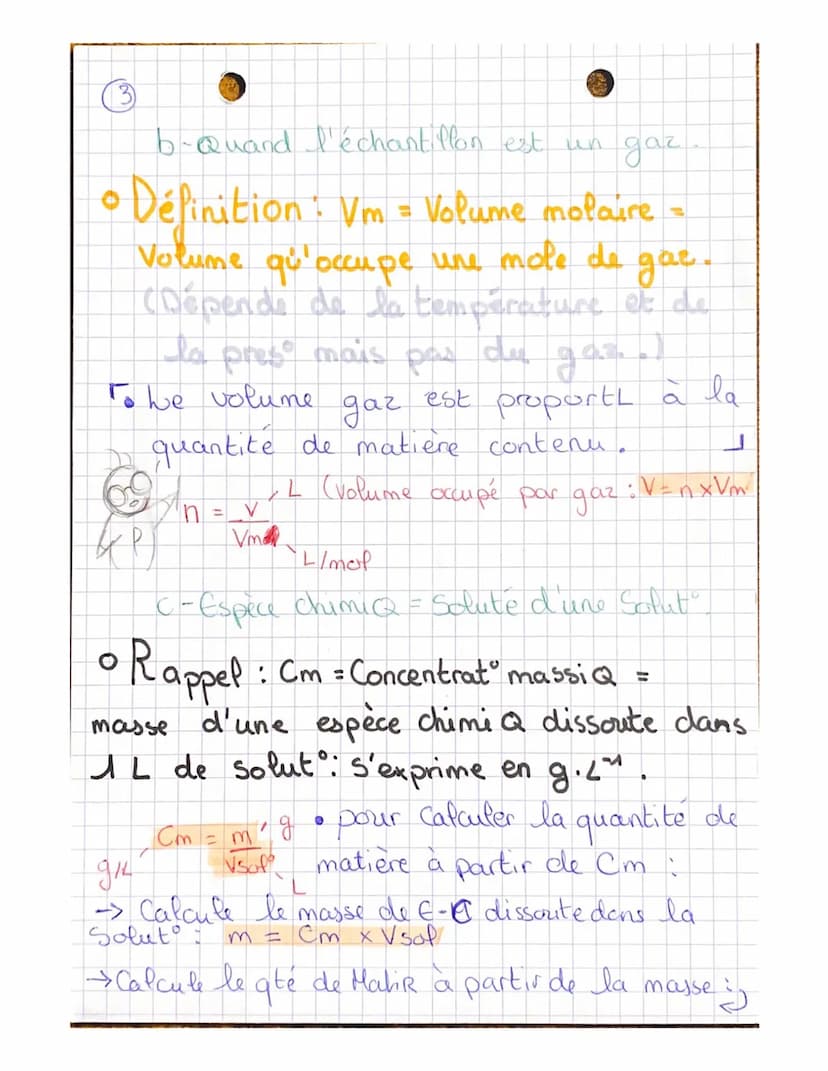 3
b-Quand l'échantillon est un gaz.
Définition : Vm = Volume molaire =
Volume qu'occupe une mole de gaz.
(Dépends de la température et de
la pres° mais pas du gaz..)
Le volume gaz est proportL à la
quantité de matière contenu.
n = V / Vm L (Volume occupé par gaz : V = n x Vm
L/mol
P
c-Espèce chimiQ = Soluté d'une Solut°.
Rappel : Cm = Concentrat° massiQ =
masse d'une espèce chimiQ dissoute dans
1 L de solut° : s'exprime en g.L⁻¹.
Cm = m / Vsol° g g/L L
• pour Calculer la quantité de
matière à partir de Cm :
→ Calcule le masse de E-C dissoute dans la
Solut° : m = Cm x Vsol
→ Calcule le qté de MatiR à partir de la masse :